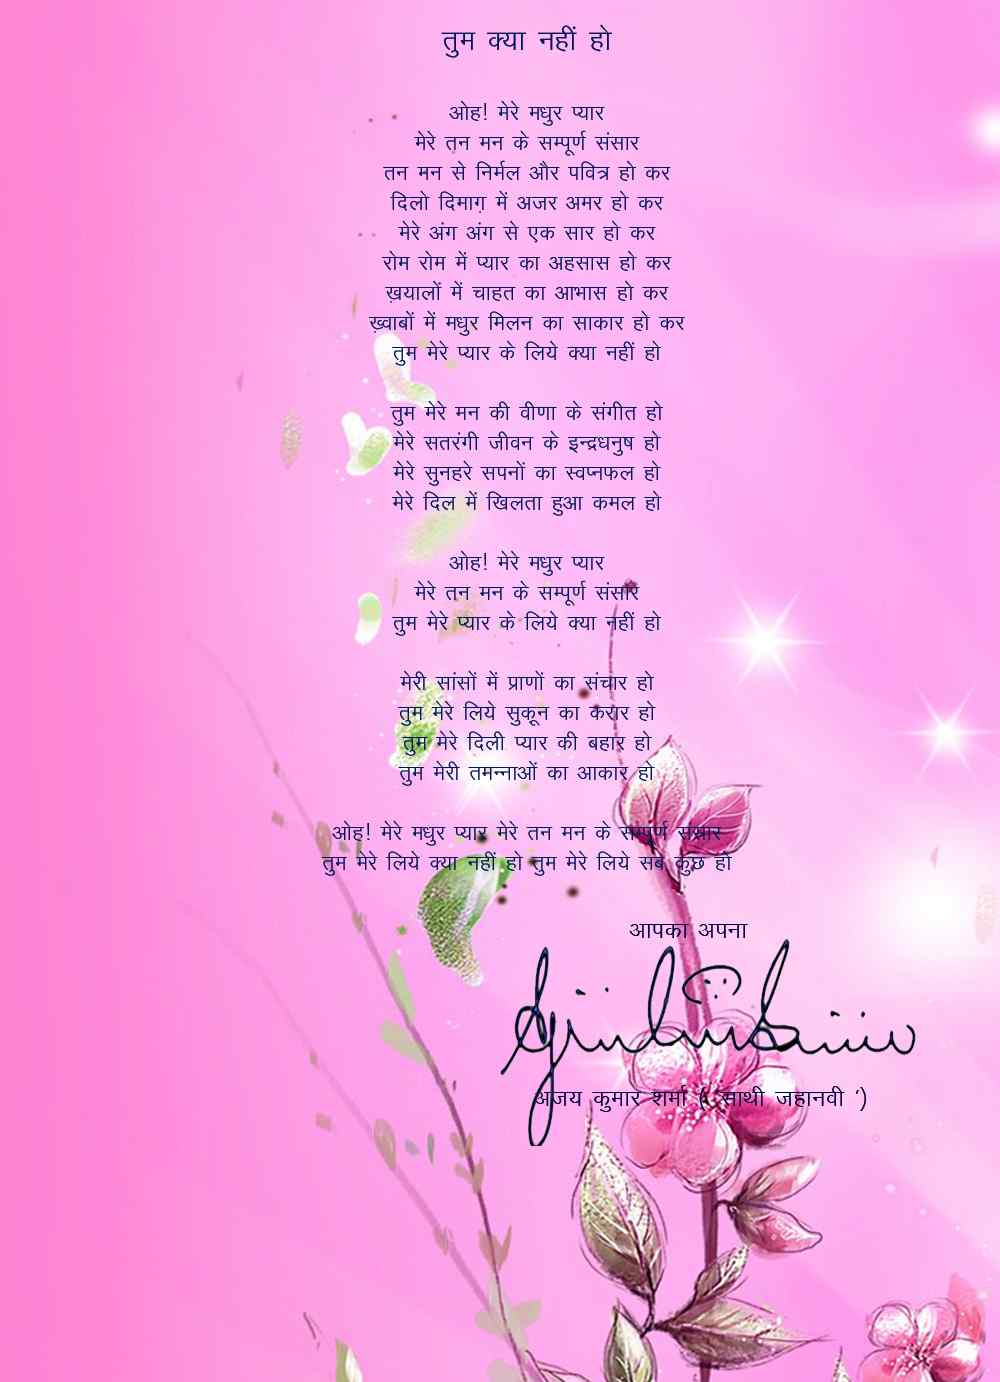 तुम क्या नहीं हो
ओह! मेरे मधुर प्यार
मेरे तन मन के सम्पूर्ण संसार
तन मन से निर्मल और पवित्र हो कर
दिलो दिमाग़ में अजर अमर हो कर
मेरे अंग अंग से एक सार हो कर
रोम रोम में प्यार का अहसास हो कर
ख़यालों में चाहत का आभास हो कर
ख़्वाबों में मधुर मिलन का साकार हो कर
तुम मेरे प्यार के लिये क्या नहीं हो
तुम मेरे मन की वीणा के संगीत हो
मेरे सतरंगी जीवन के इन्द्रधनुष हो
मेरे सुनहरे सपनों का स्वप्नफल हो
मेरे दिल में खिलता हुआ कमल हो
ओह! मेरे मधुर प्यार
मेरे तन मन के सम्पूर्ण संसार
तुम मेरे प्यार के लिये क्या नहीं हो
मेरी सांसों में प्राणों का संचार हो
तुम मेरे लिये सुकून का करार हो
तुम मेरे दिली प्यार की बहार हो
तुम मेरी तमन्नाओं का आकार हो
ओह! मेरे मधुर प्यार मेरे तन मन के सम्पूर्ण संसार
तुम मेरे लिये क्या नहीं हो तुम मेरे लिये सब कुछ हो
आपका अपना
अजय कुमार शर्मा ( ‘ साथी जहानवी ’)